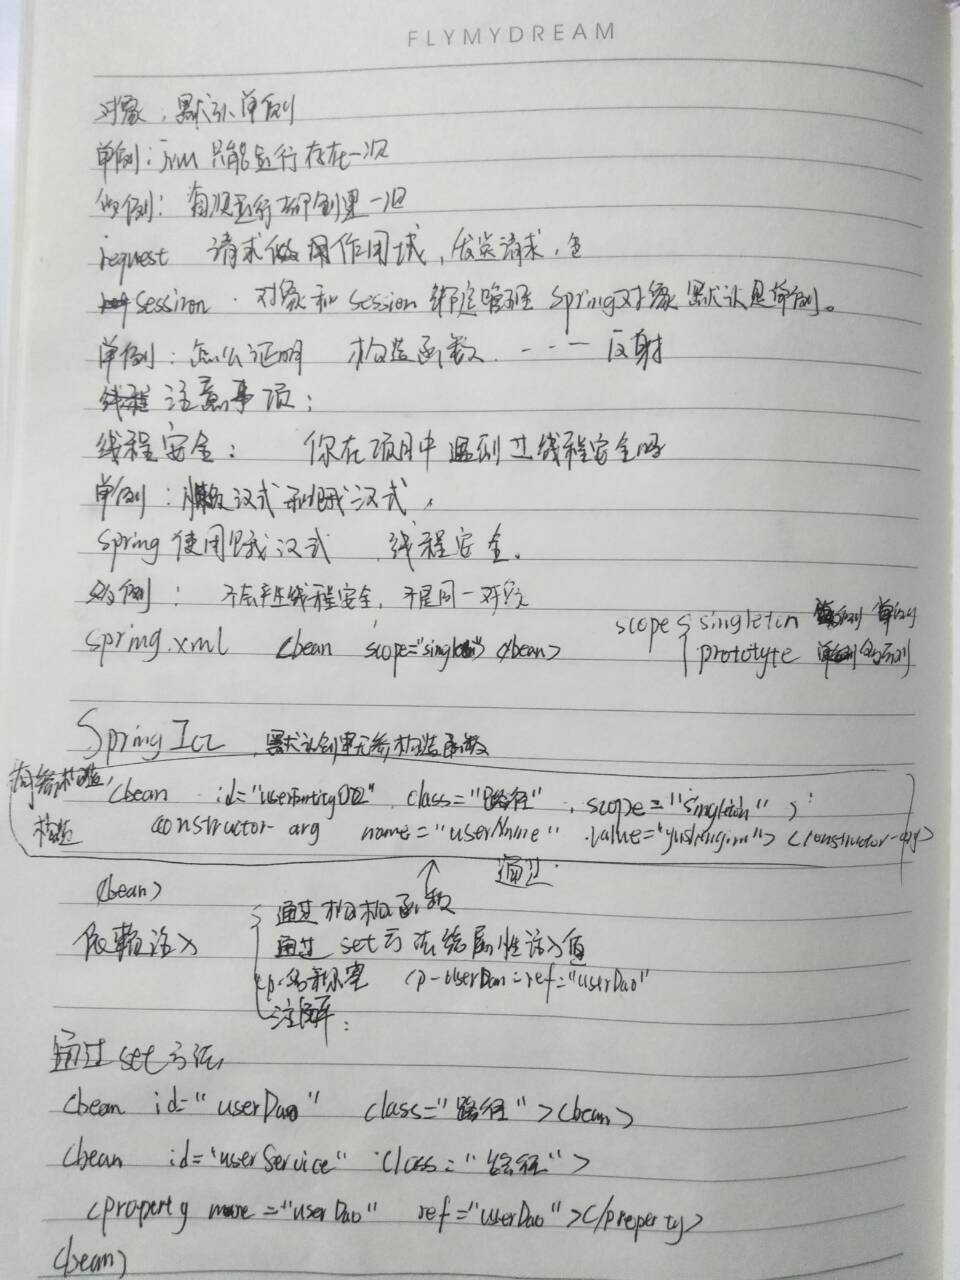 FLYMYDREAM
对象，默认单例
单例：jvm 只能运行存在一次
多例：每次运行都创建一次
request 请求作用域，发送请求，
session 对象和 session 绑定 spring对象默认是单例。
单例：怎么证明 构造函数 ---- 反射
注意事项：
线程安全： 你在项目中遇到过线程安全吗
单例：懒汉式和饿汉式，
spring 使用饿汉式 线程安全。
多例： 不会产生线程安全，不是同一对象
spring.xml <bean scope="singleton"> <bean>
scope { singleton 单例
prototyte 多例
Spring Ioc 默认创建无参构造函数
有参构造 <bean id="userEntity002" class="路径" scope="singleton" >
构造 constructor-arg name="userName" value= <constructor-arg>
通过
<bean>
依赖注入
通过构造函数
通过 set方法给属性注入值
p名称 <p-userDao=ref="userDao"
注解：
通过set方法
<bean id="userDao" class="路径"><bean>
<bean id="userService" class="路径">
<property name="userDao" ref="userDao"></property>
<bean>